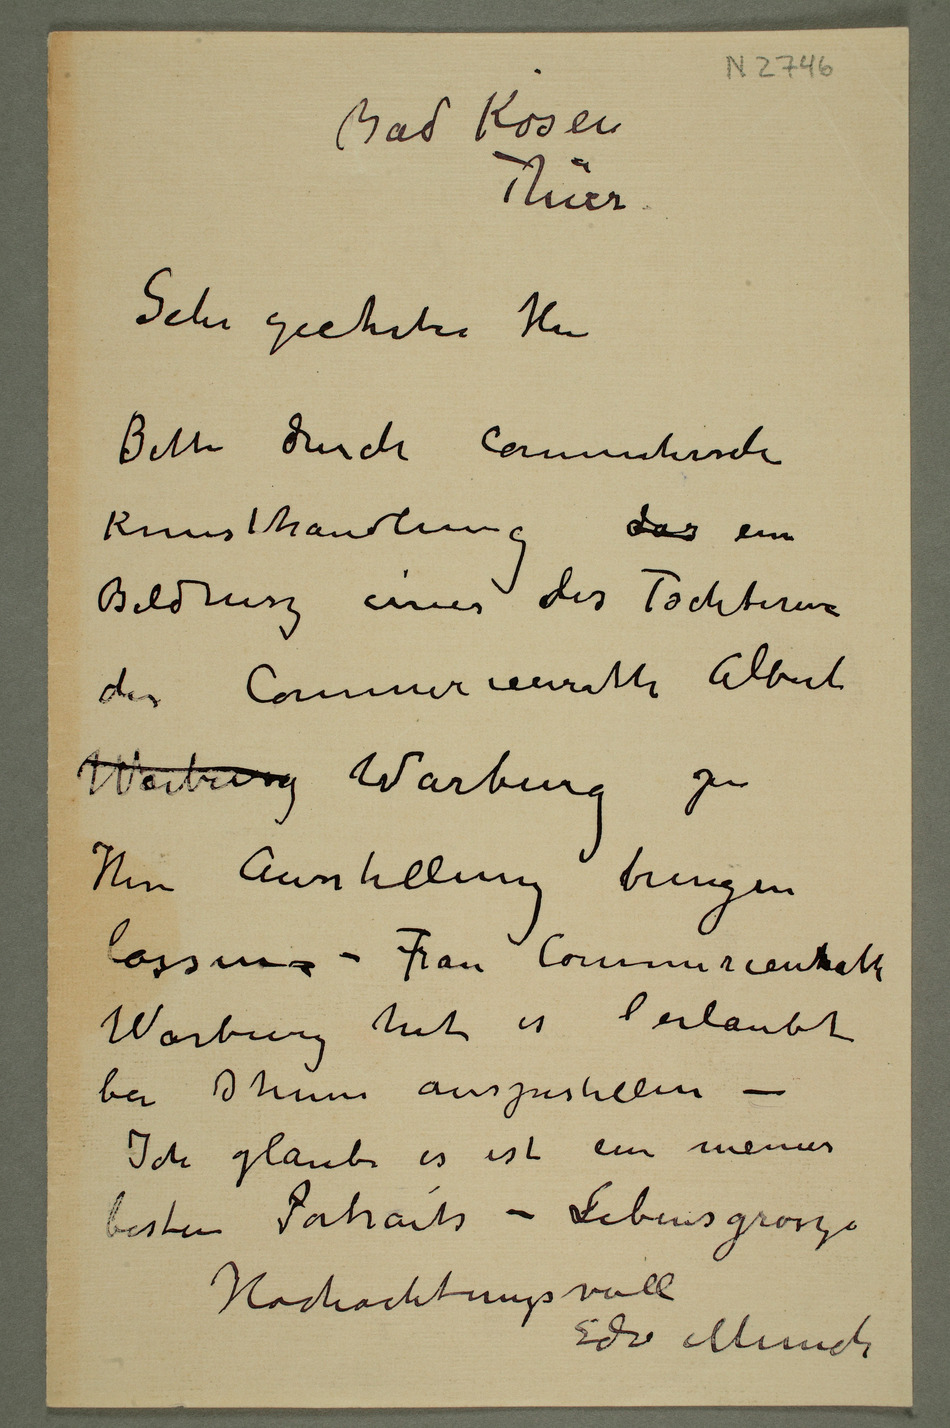 N 2746
Bad Kösen
Thür
Sehr geehrter Herr
Bitte durch Commetersche
Kunsthandlung das ein
Bildnisz einer des Töchteren
des Commercienraths Albert
Warburg Warburg zu
Ihre Ausstellung bringen
lassen – Frau Commercienrath
Warburg hat es erlaubt
bei Ihnen auszustellen —
Ich glaube es ist ein meiner
besten Portraits – Lebensgrosze
Hochachtungsvoll
Edv Munch